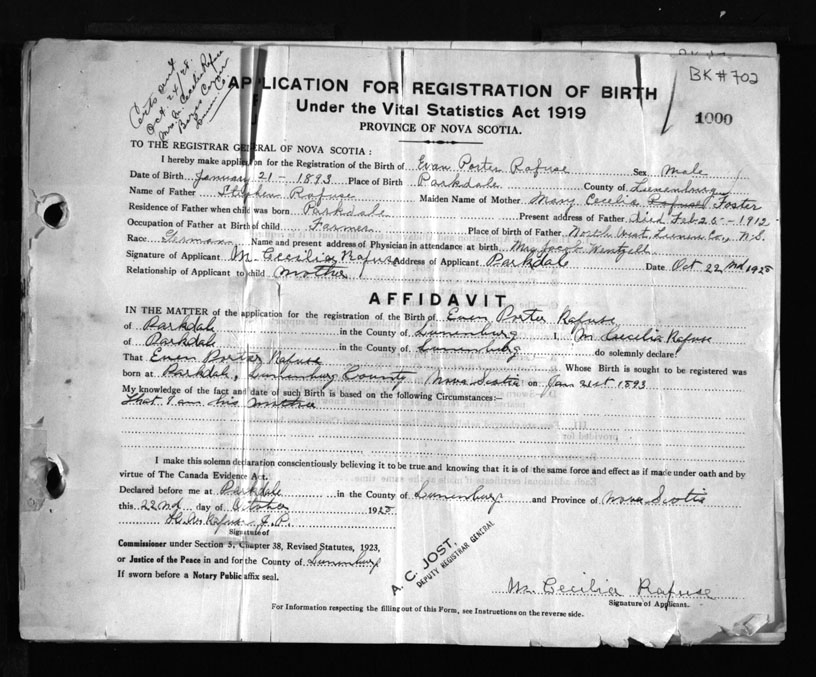 BK # 702
Oct. 24/25.
APPLICATION FOR REGISTRATION OF BIRTH
Under the Vital Statistics Act 1919
1000
PROVINCE OF NOVA SCOTIA.
TO THE REGISTRAR GENERAL OF NOVA SCOTIA:
I hereby make application for the Registration of the Birth of Evan Porter Rafuse Sex Male
Date of Birth January 21 - 1893 Place of Birth Parkdale County of Lunenburg
Name of Father Stephen Rafuse Maiden Name of Mother Mary Cecelia Rafuse Foster
Residence of Father when child was born Parkdale Present address of Father Died Feb 25 - 1912
Occupation of Father at Birth of child Farmer Place of birth of Father North West, Lunen Co., N.S.
Race German Name and present address of Physician in attendance at birth Mrs Jacob Wentzell
Signature of Applicant M. Cecilia Rafuse Address of Applicant Parkdale Date Oct 22nd 1925
Relationship of Applicant to child mother
AFFIDAVIT
IN THE MATTER of the application for the registration of the Birth of Even Porter Rafuse
of Parkdale in the County of Lunenburg I, M Caecilia Rafuse
of Parkdale in the County of Lunenburg do solemnly declare:
That Even Porter Rafuse Whose Birth is sought to be registered was
born at Parkdale, Lunenburg County Nova Scotia on Jan 21st 1893
My knowledge of the fact and date of such Birth is based on the following Circumstances:—
That I am his Mother
I make this solemn declaration conscientiously believing it to be true and knowing that it is of the same force and effect as if made under oath and by
virtue of The Canada Evidence Act.
Declared before me at Parkdale in the County of Lunenburg and Province of Nova Scotia
this 22nd day of October 1925
Rafuse J.P.
Signature of
Commissioner under Section 5, Chapter 38, Revised Statutes, 1923,
or Justice of the Peace in and for the County of Lunenburg
If sworn before a Notary Public affix seal.
A. C. JOST,
DEPUTY REGISTRAR GENERAL
M. Cecilia Rafuse
Signature of Applicant.
For Information respecting the filling out of this Form, see Instructions on the reverse side.